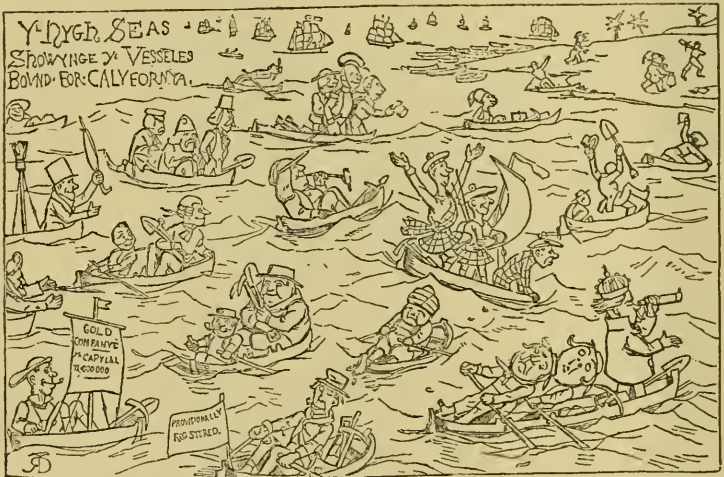 Yᵉ HYGH SEAS
SHOWYNGE Yᵉ VESSELES
BOUND · FOR · CALYFORNYA ·
GOLD
COMPANYE
Yᵉ CAPYTAL
PROVISIONALLY
REGISTERED.
RD